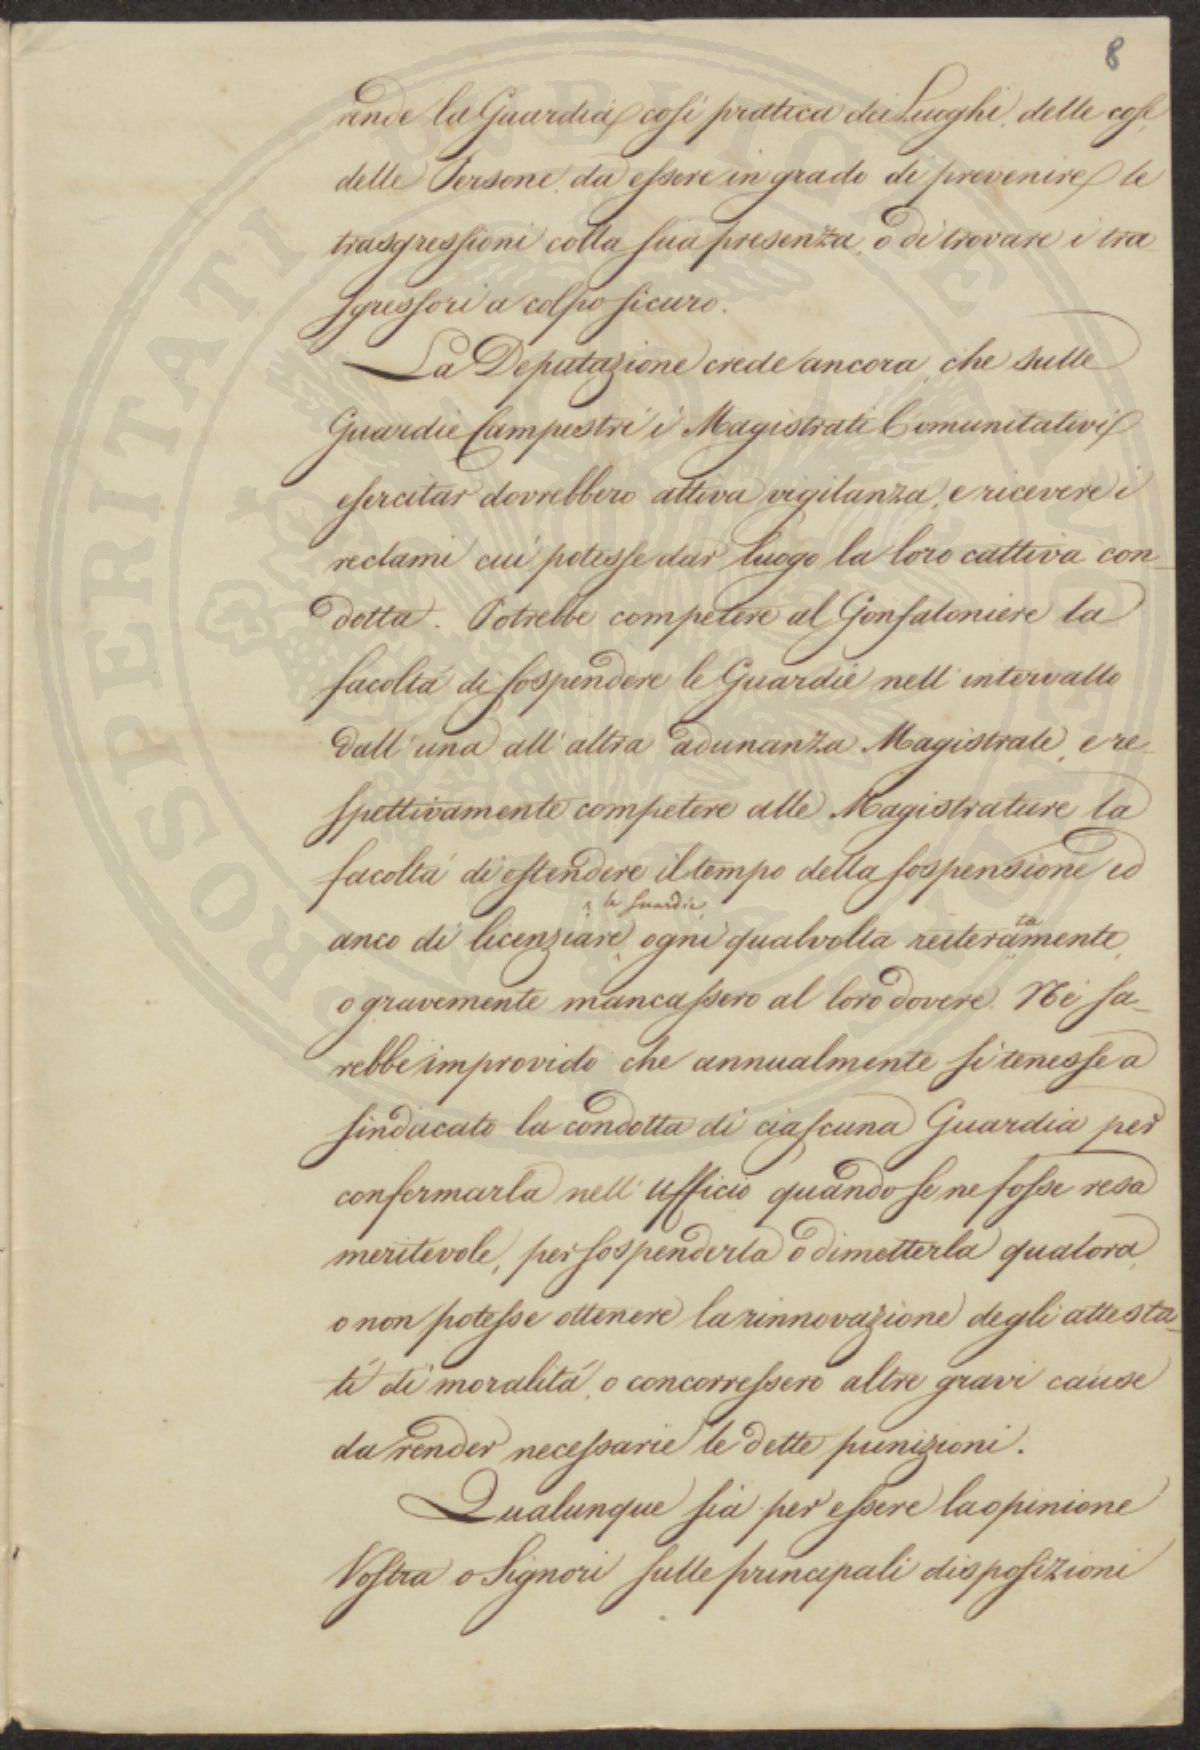 8
rende la Guardia così pratica dei Luoghi, delle cose
delle Persone, da essere in grado di prevenire le
trasgressioni colla sua presenza, o di trovare i tra
sgressori a colpo sicuro.
La Deputazione crede ancora, che sulle
Guardie Campestri i Magistrati Comunitativi
esercitar dovrebbero attiva vigilanza, e ricevere i
reclami cui potesse dar luogo la loro cattiva con_
dotta. Potrebbe competere al Gonfaloniere la
facoltà di sospendere le Guardie nell'intervallo
dall'una all'altra adunanza Magistrale, e re_
spettivamente competere alle Magistrature la
facoltà di estendere il tempo della sospensione ed
le Guardie
anco di licenziare, ogni qualvolta reiteratamente,
o gravemente mancassero al loro dovere. Nè sa_
rebbe improvido che annualmente si tenesse a
sindacato la condotta di ciascuna Guardia per
confermarla nell'Ufficio quando se ne fosse resa
meritevole, per sospenderla o dimetterla qualora,
o non potesse ottenere la rinnovazione degli attesta_
ti di moralità, o concorressero altre gravi cause
da render necessarie le dette punizioni.
Qualunque sia per essere la opinione
Vostra o Signori sulle principali disposizioni
PROSPERITATI PUBLICAE AUGENDAE